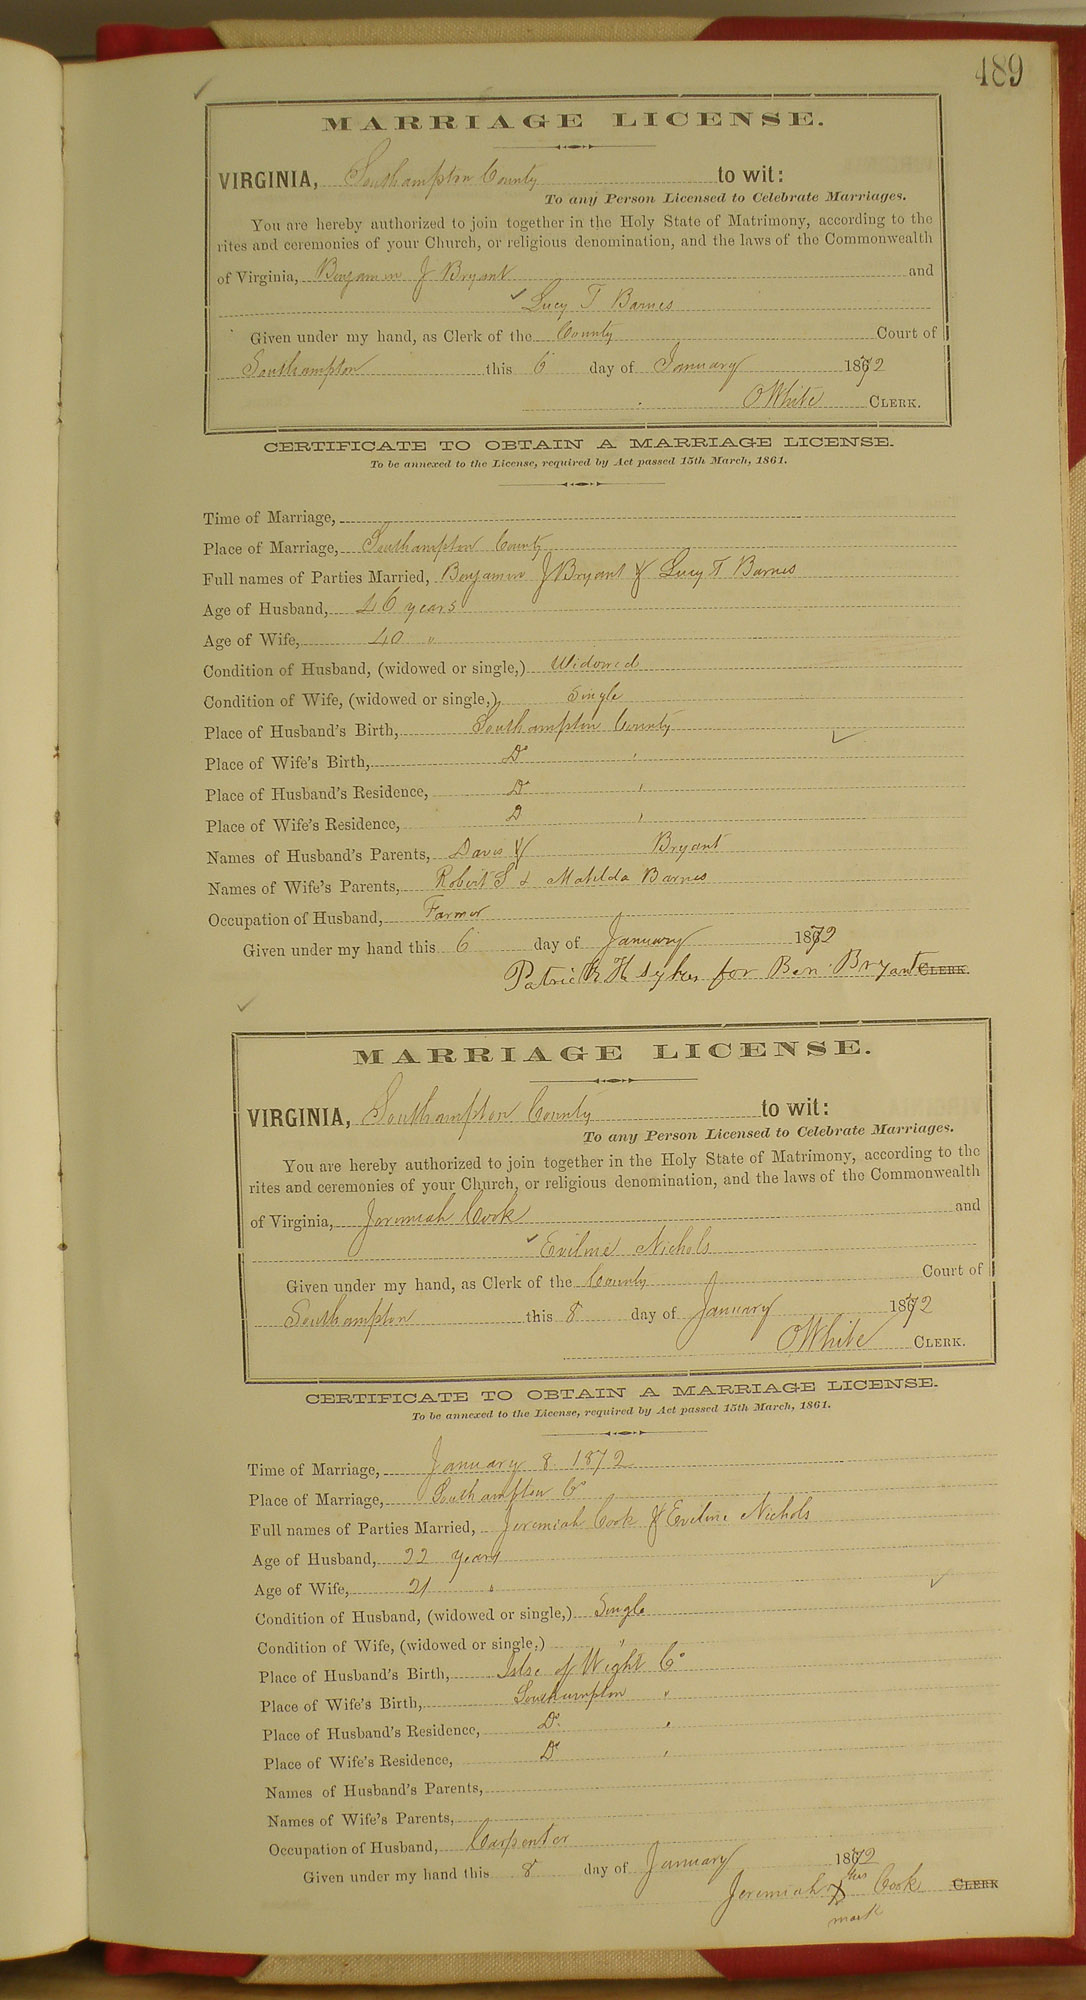 489
MARRIAGE LICENSE.
VIRGINIA, Southampton County to wit:
To any Person Licensed to Celebrate Marriages.
You are hereby authorized to join together in the Holy State of Matrimony, according to the
rites and ceremonies of your Church, or religious denomination, and the laws of the Commonwealth
of Virginia, Benjamin J Bryant and
Lucy T Barnes
Given under my hand, as Clerk of the County Court of
Southampton this 6 day of January 1872
O White CLERK.
CERTIFICATE TO OBTAIN A MARRIAGE LICENSE.
To be annexed to the License, required by Act passed 15th March, 1861.
Time of Marriage,
Place of Marriage, Southampton County
Full names of Parties Married, Benjamin J Bryant & Lucy T Barnes
Age of Husband, 46 years
Age of Wife, 40 "
Condition of Husband, (widowed or single,) Widowed
Condition of Wife, (widowed or single,) Single
Place of Husband's Birth, Southampton County
Place of Wife's Birth, Do "
Place of Husband's Residence, Do "
Place of Wife's Residence, D "
Names of Husband's Parents, Davis & Bryant
Names of Wife's Parents, Robert S & Matilda Barnes
Occupation of Husband, Farmer
Given under my hand this 6 day of January 1872
Patrick H Sykes for Ben. Bryant CLERK.
MARRIAGE LICENSE.
VIRGINIA, Southampton County to wit:
To any Person Licensed to Celebrate Marriages.
You are hereby authorized to join together in the Holy State of Matrimony, according to the
rites and ceremonies of your Church, or religious denomination, and the laws of the Commonwealth
of Virginia, Jeremiah Cook and
Eviline Nichols
Given under my hand, as Clerk of the County Court of
Southampton this 8 day of January 1872
O White CLERK.
CERTIFICATE TO OBTAIN A MARRIAGE LICENSE.
To be annexed to the License, required by Act passed 15th March, 1861.
Time of Marriage, January 8 1872
Place of Marriage, Southampton Co
Full names of Parties Married, Jeremiah Cook & Eveline Nichols
Age of Husband, 22 years
Age of Wife, 21 "
Condition of Husband, (widowed or single,) Single
Condition of Wife, (widowed or single,) "
Place of Husband's Birth, Isle of Wight Co
Place of Wife's Birth, Southampton "
Place of Husband's Residence, Do "
Place of Wife's Residence, Do "
Names of Husband's Parents,
Names of Wife's Parents,
Occupation of Husband, Carpenter
Given under my hand this 8 day of January 1872
his
Jeremiah X Cook CLERK
mark